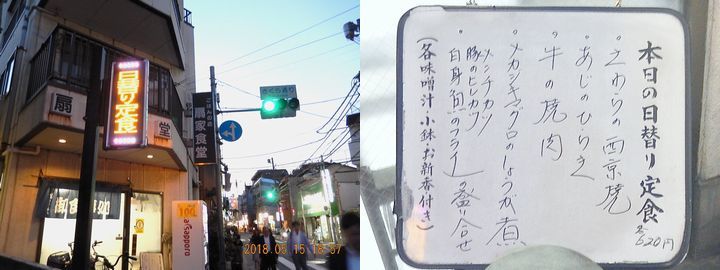 日替り定食
扇
堂
さくら通り
扇家食堂
御食事処
100
Sapporo
2018 05 15 18:57
本日の日替り定食
各620円
・さわらの西京焼
・あじのひらき
・牛の焼肉
・メカジキマグロのしょうが煮
・メンチカツ
豚のヒレカツ
白身魚のフライ
盛り合せ
(各味噌汁 小鉢 お新香付き)